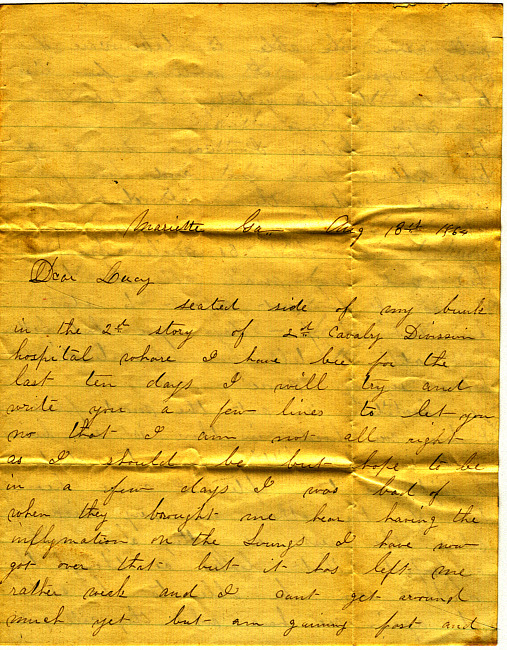 Mariette Ga. Aug 18th 1864
Dear Lucy
seated side of my bunk
in the 2d story of 2d Cavaly Division
hospital whare I have bee for the
last ten days I will try and
write you a few lines to let you
no that I am not all right
as I should be but hope to be
in a few days I was bad of
when they brought me hear having the
inflymation on the Loungs I have now
got over that but it has left me
rather weck and I cant get around
much yet but am gaining fast and